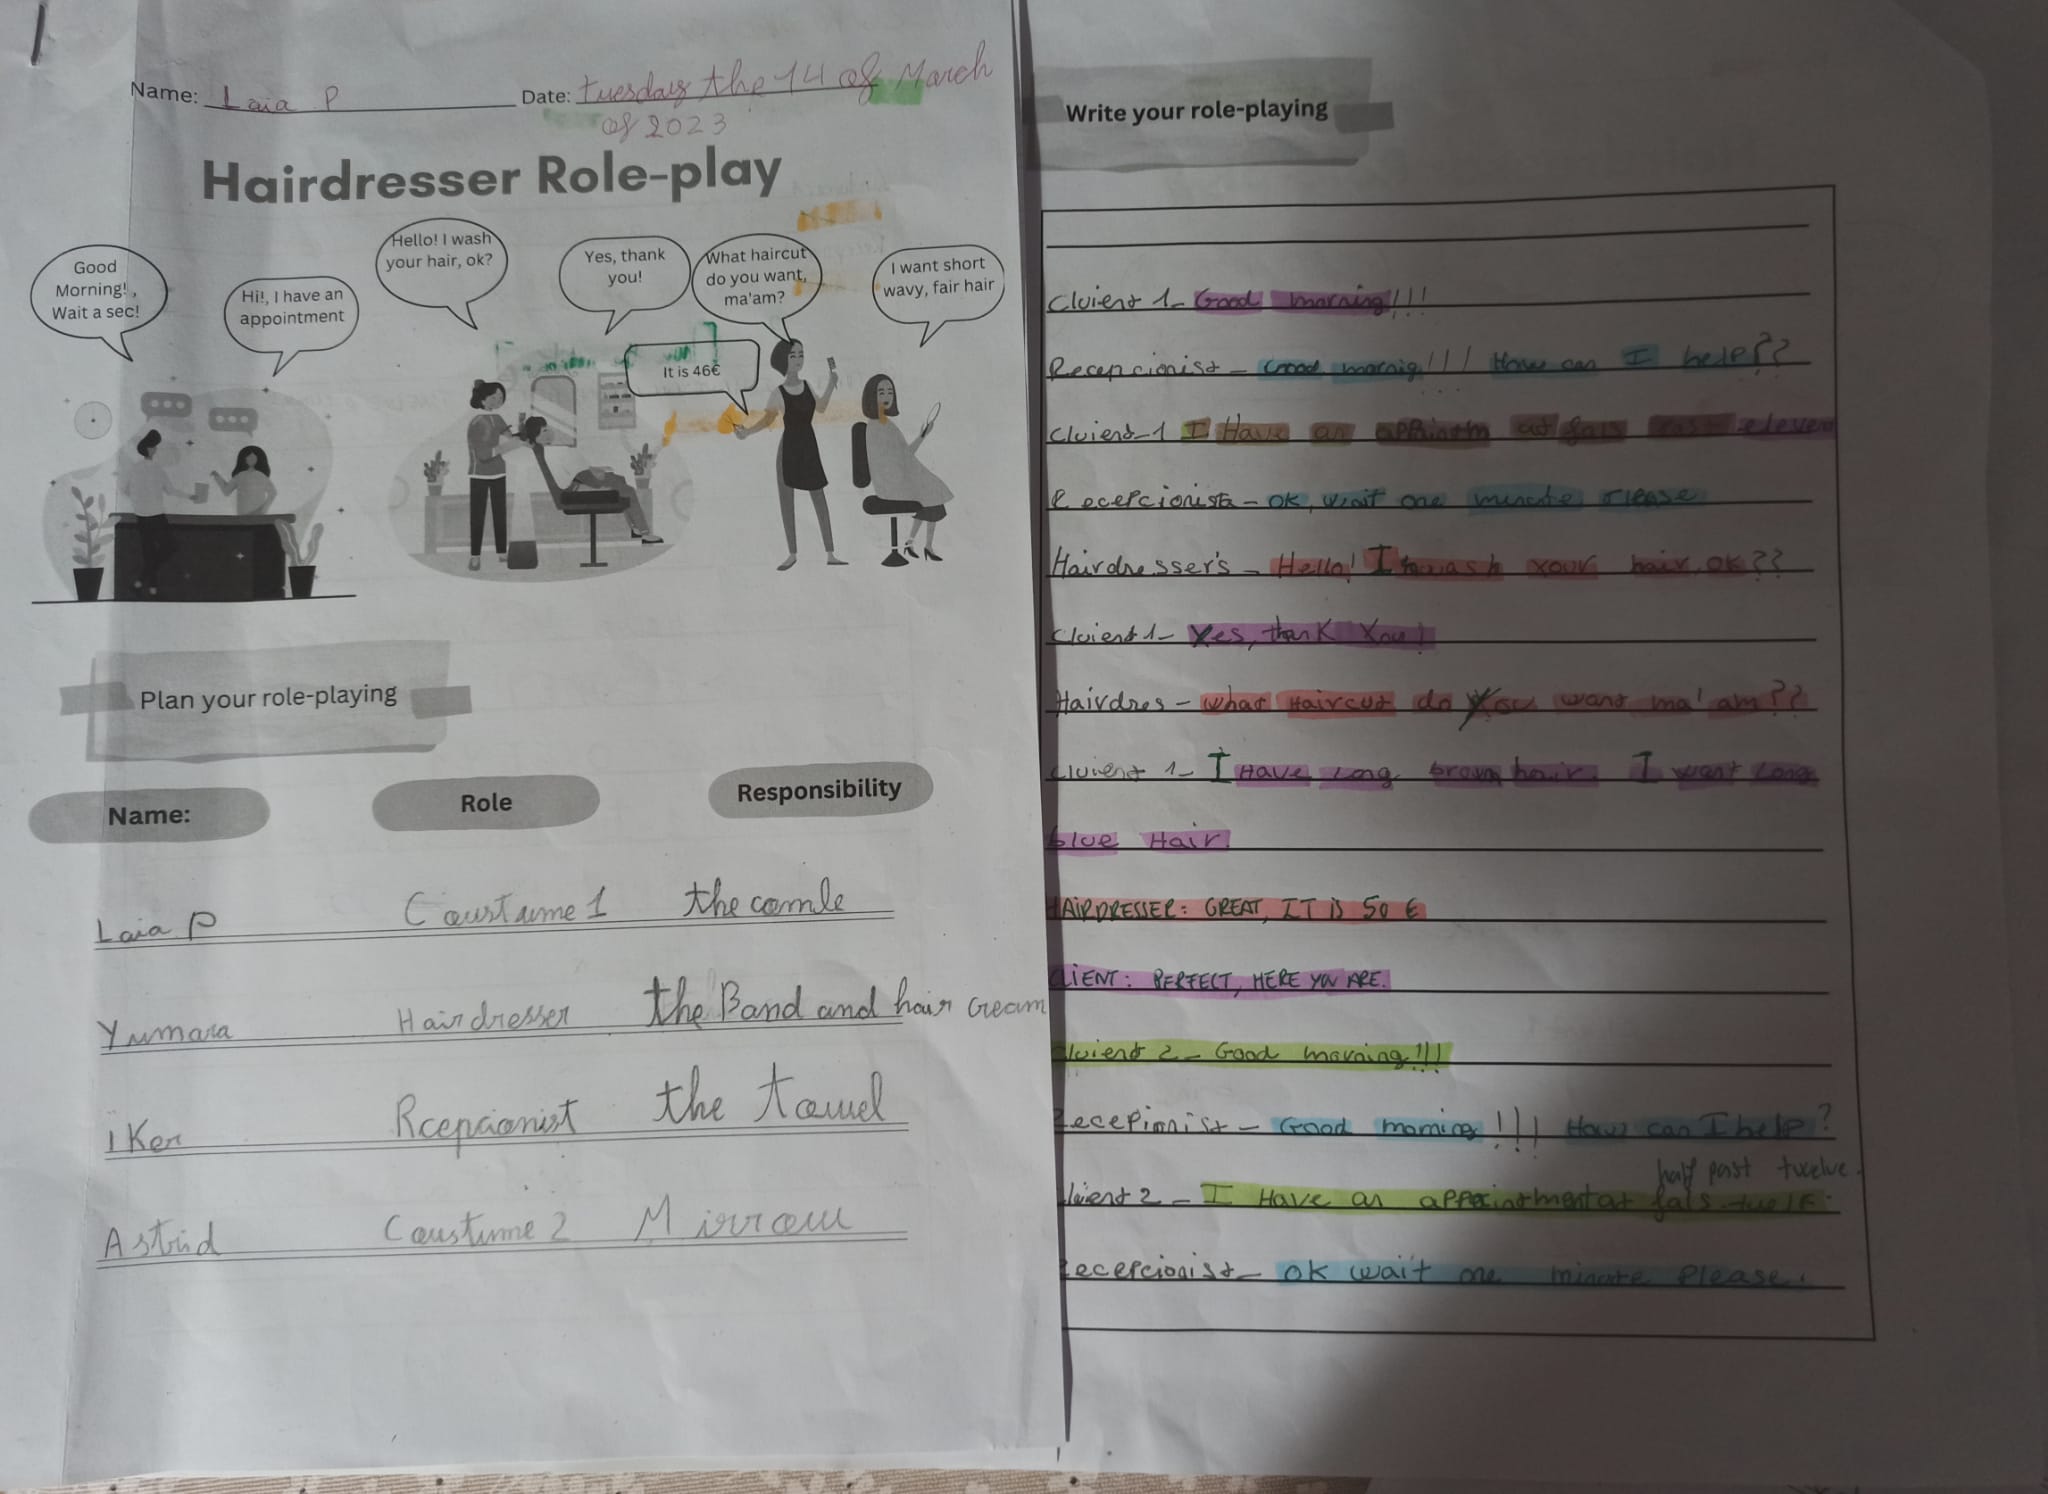 Name: Laia P Date: Tuesday the 14 of March
of 2023
Hairdresser Role-play
Good
Morning!,
Wait a sec!
Hi!, I have an
appointment
Hello! I wash
your hair, ok?
Yes, thank
you!
What haircut
do you want,
ma'am?
I want short
wavy, fair hair
It is 46€
Plan your role-playing
Name: Role Responsibility
Laia P Coustume 1 the comle
Yumara Hairdresser the Band and hair cream
IKer Rcepcionist the towel
Astrid Coustume 2 Mirrow
Write your role-playing
Cluient 1- Good morning!!!
Recepcionist - Good mornig!!! How can I help??
Cluient-1 I Have an appointm at fals past eleven
Recepcionista - OK, wait one minute please
Hairdresser's - Hello! I wash your hair, ok??
Cluient 1- Yes, thank you!
Hairdres - what Haircut do you want ma'am??
Cluient 1- I Have long brown hair. I want long
blue Hair.
HAIRDRESSER: GREAT, IT IS 50 €
CLIENT: PERFECT, HERE YOU ARE.
Cluient 2- Good morning!!!
Recepionist - Good morning!!! How can I help?
half past twelve.
Client 2 - I Have an appointment at fals twelf.
Recepcionist- OK wait one minute please.